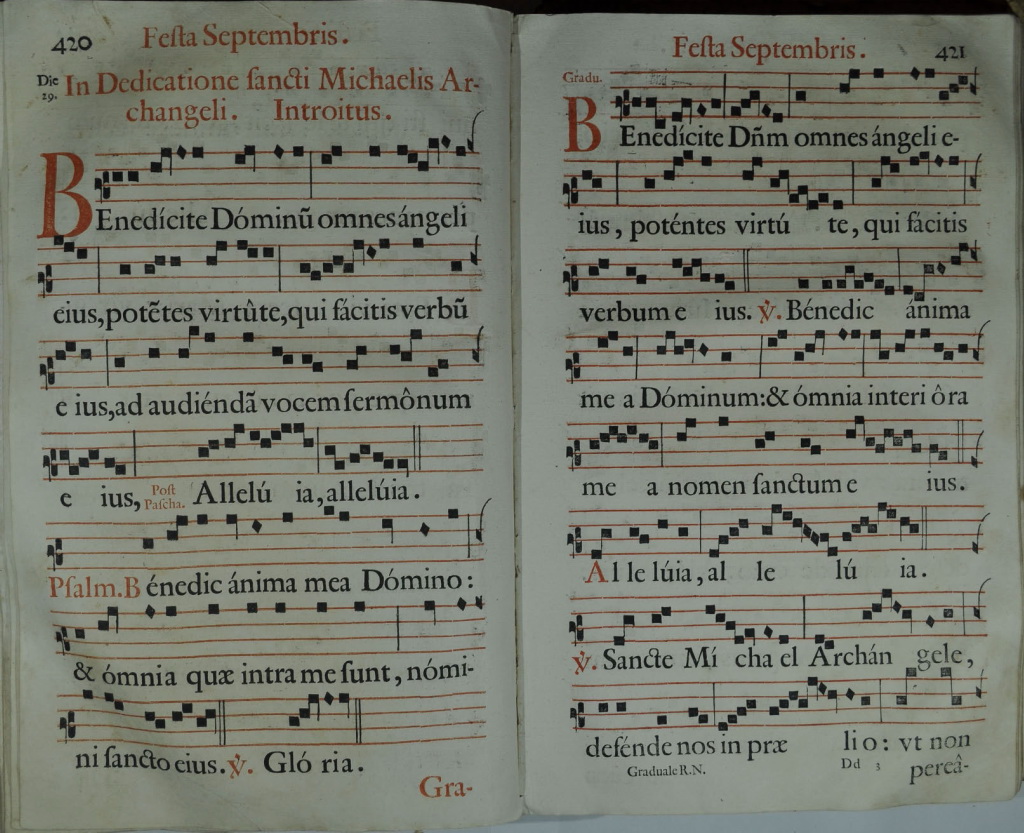 420 Feſta Septembris.
Die 29. In Dedicatione ſancti Michaelis Ar-
changeli. Introitus.
BEnedícite Dóminũ omnes ángeli
eius, potẽtes virtûte, qui fácitis verbũ
e ius, ad audiéndã vocem ſermônum
e ius, Poſt Paſcha. Allelú ia, allelúia.
Pſalm. B énedic ánima mea Dómino:
& ómnia quæ intra me ſunt, nómi-
ni ſancto eius. ℣. Gló ria.
Gra-
Feſta Septembris. 421
Gradu.
BEnedícite Dñm omnes ángeli e-
ius, poténtes virtú te, qui fácitis
verbum e ius. ℣. Bénedic ánima
me a Dóminum: & ómnia interi ôra
me a nomen ſanctum e ius.
Al le lúia, al le lú ia.
℣. Sancte Mí cha el Archán gele,
defénde nos in præ li o: vt non
Graduale R.N. Dd 3 pereâ-